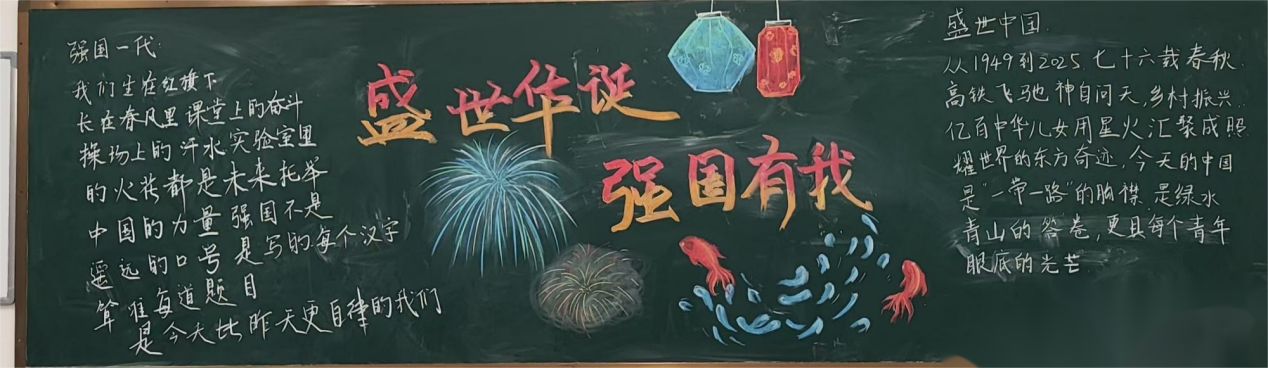 强国一代
我们生在红旗下
长在春风里课堂上的奋斗
操场上的汗水实验室里
的火花都是未来托举
中国的力量强国不是
遥远的口号是写的每个汉字
算准每道题目
是今天比昨天更自律的我们
盛世华诞
强国有我
盛世中国
从1949到2025七十六载春秋
高铁飞驰神自问天,乡村振兴.
亿百中华儿女用星火汇聚成照
耀世界的东方奇迹,今天的中国
是"一带一路"的胸襟是绿水
青山的答卷,更是每个青年
眼底的光芒